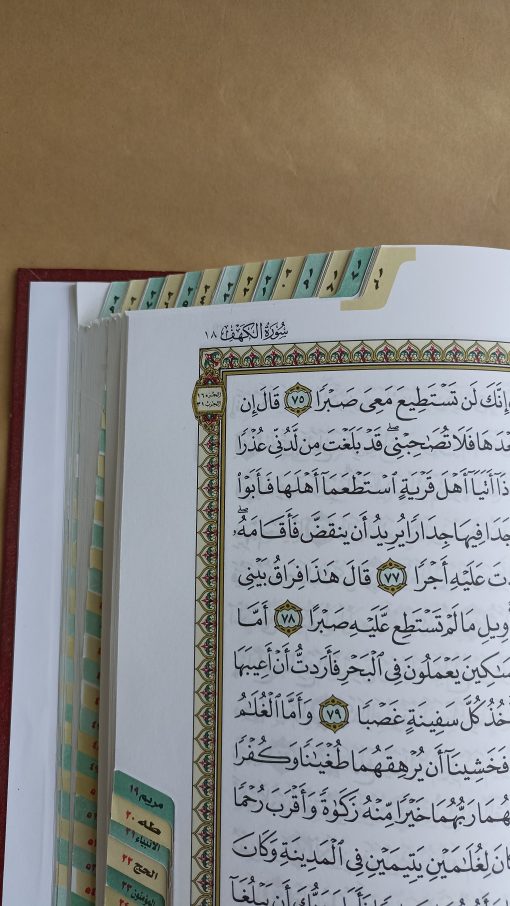 سُورَةُ الكَهْفِ ١٨
الجزء ١٦
الحزب ٣١
إِنَّكَ لَن تَسْتَطِيعَ مَعِىَ صَبْرًا ٧٥ قَالَ إِن
فَلَا تُصَٰحِبْنِى ۖ قَدْ بَلَغْتَ مِن لَّدُنِّى عُذْرًا
أَتَيَآ أَهْلَ قَرْيَةٍ ٱسْتَطْعَمَآ أَهْلَهَا فَأَبَوْا۟
فِيهَا جِدَارًا يُرِيدُ أَن يَنقَضَّ فَأَقَامَهُۥ ۖ
عَلَيْهِ أَجْرًا ٧٧ قَالَ هَٰذَا فِرَاقُ بَيْنِى
مَا لَمْ تَسْتَطِع عَّلَيْهِ صَبْرًا ٧٨ أَمَّا
يَعْمَلُونَ فِى ٱلْبَحْرِ فَأَرَدتُّ أَنْ أَعِيبَهَا
كُلَّ سَفِينَةٍ غَصْبًا ٧٩ وَأَمَّا ٱلْغُلَٰمُ
فَخَشِينَآ أَن يُرْهِقَهُمَا طُغْيَٰنًا وَكُفْرًا
رَبُّهُمَا خَيْرًا مِّنْهُ زَكَوٰةً وَأَقْرَبَ رُحْمًا
لِغُلَٰمَيْنِ يَتِيمَيْنِ فِى ٱلْمَدِينَةِ وَكَانَ
أَن يَبْلُغَآ
مريم ١٩
طه ٢٠
الأنبياء ٢١
الحج ٢٢
المؤمنون ٢٣